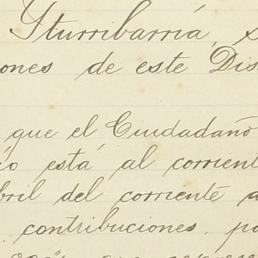 Yturribarría,
ones de este Dis
que el Ciudadano
io está al corrient
bril del corriente a
contribuciones, po